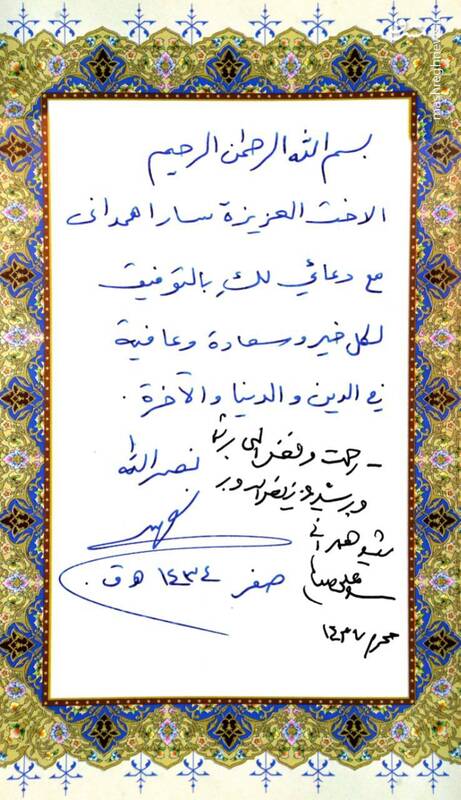 بسم الله الرحمن الرحيم
الاخت العزيزة سارا همدانی
مع دعائي لكِ بالتوفيق
لكل خير وسعادة وعافية
في الدين والدنيا والآخرة .
نصر الله
صفر ١٤٣٤ هـ ق .
رحمت و فضل الهی بر شما
و بر شهید
همدانی
محرم ١٤٣٧
mashreghnews.ir